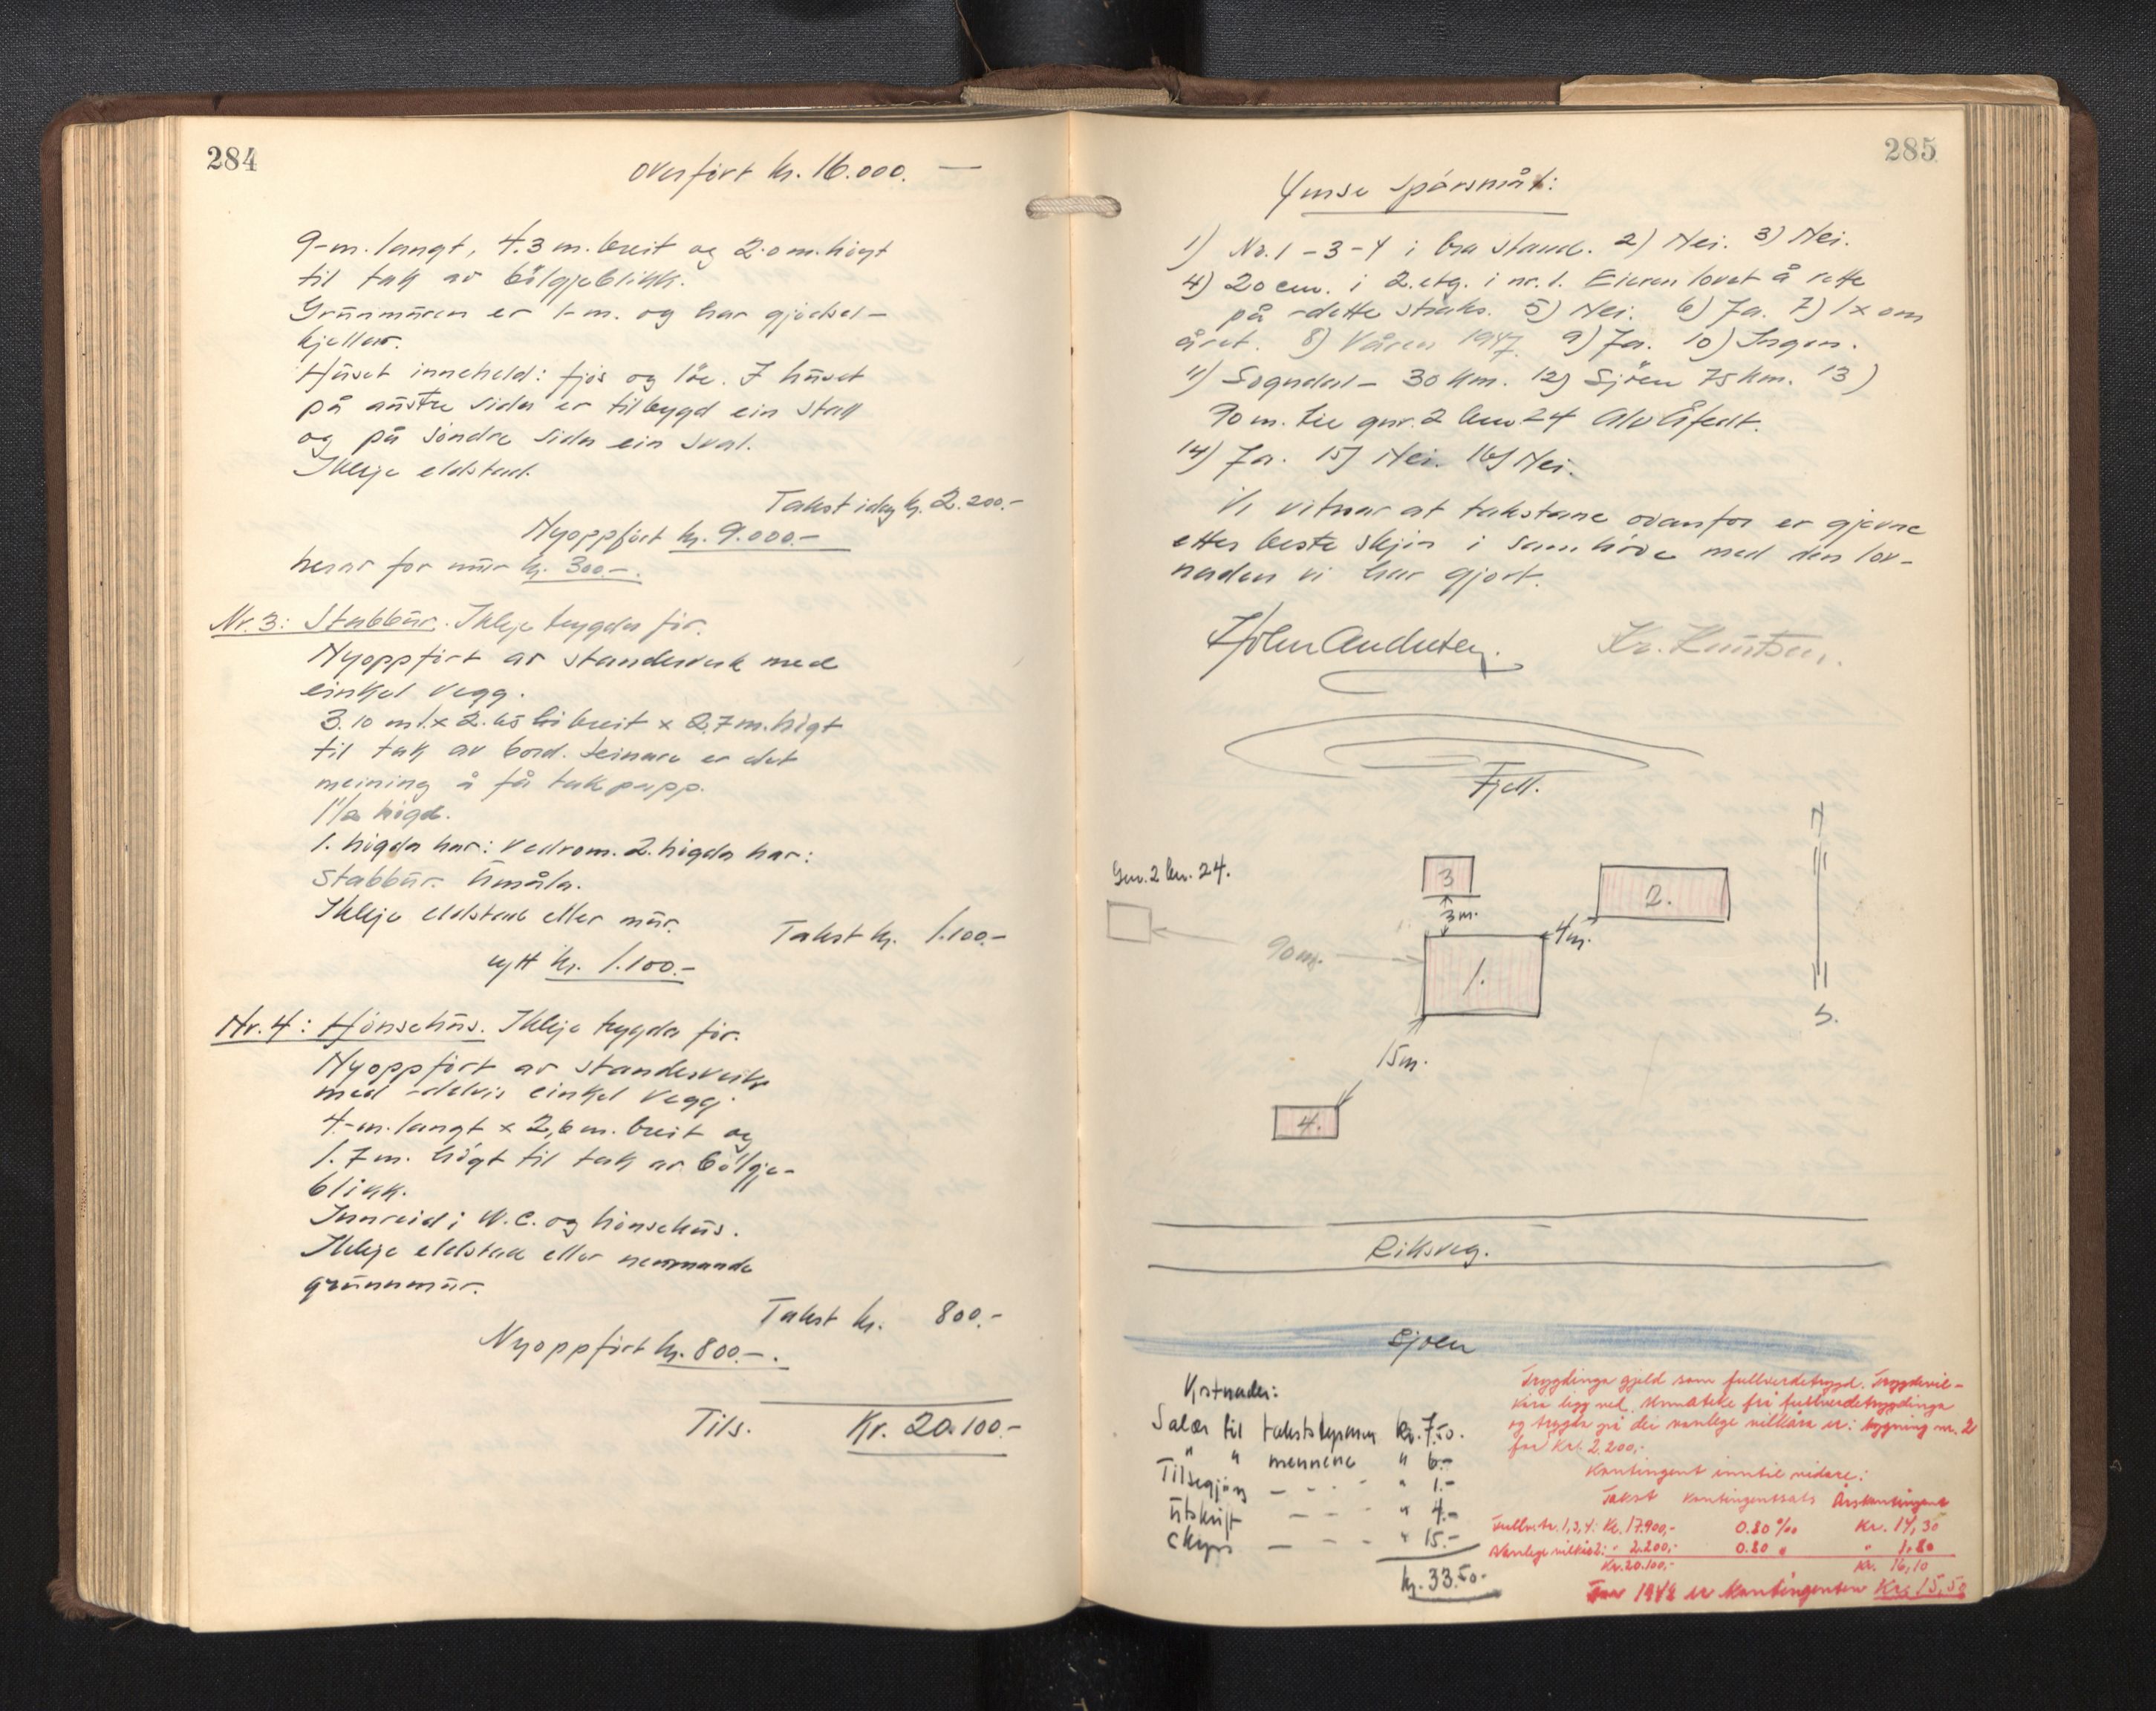 284
overført kr. 16.000. —
9-m. langt, 4.3 m. breit og 2.0 m. høgt
til tak av bölgjeblikk.
Grünmüren er 1-m. og har gjødsel-
kjellar.
Hüset inneheld: fjøs og löe. I hüset
på aüstre sida er tilbygd ein stall
og på søndre sida ein sval.
Ikkje eldstad.
Takst idag kr. 2.200.-
Nyoppført kr. 9.000.-
herav for mür kr. 300.-.
Nr. 3: Stabbür. Ikkje trygda för.
Nyoppført av standerverk med
einkel vegg.
3.10 m l. x 2.65 breit x 2,7 m. högt
til tak av bord. Seinare er det
meining å få takpapp.
1 1/2 högd.
1. högda har: Vedrom. 2. högda har:
Stabbür. Ümåla.
Ikkje eldstad eller mür.
Takst kr. 1.100.-
nytt kr. 1.100.-
Nr. 4: Hönsehüs. Ikkje trygda för.
Nyoppført av standerverk
med delvis einkel vegg.
4.-m. langt x 2,6 m. breit og
1.7 m. högt til tak av bölgje-
blikk.
Innreidi W.C. og hönsehüs.
Ikkje eldstad eller nemnande
grünnmür.
Takst kr. 800.-
Nyoppført kr. 800.-.
Tils. Kr. 20.100.-
285
Ymse Spørsmål:
1) Nr. 1 - 3 - 4 i bra stand. 2) Nei. 3) Nei.
4) 20 cm. i 2. etg. i nr. 1. Eieren lovet å rette
på dette straks. 5) Nei. 6) Ja. 7) 1 x om
året. 8) Våren 1947. 9) Ja. 10) Ingen.
11) Sogndal - 30 km. 12) Sjöen 75 km. 13)
90 m. til gnr. 2 bnr. 24 Alv Åfedt.
14) Ja. 15) Nei. 16) Nei.
Vi vitnar at takstane ovanfor er gjevne
etter beste skjön i samhöve med den lov-
naden vi har gjort.
Kr. Knütsen.
Fjell.
N
Gnr. 2 bnr. 24.
3
2.
3 m.
4 m.
90 m.
1.
S.
15 m.
4.
Riksveg.
Sjöen
Kostnader:
Salær til takstskjønn kr. 7.50.
" " mennene " 6.-
Tilsegjing — " 1.-
Ütskrift — " 4.-
Skyss — " 15.-
kr. 33.50.-
Trygdinga gjeld som fullverdetrygd. Trygdevil-
kåra ligg ved. Unnateke frå fullverdetrygdinga
og trygda på dei vanlege vilkåra er: bygning nr. 2
for kr. 2.200,-
Kontingent inntil vidare:
Takst Kontingentsats Årskontingent
Fullv. nr. 1, 3, 4: Kr. 17.900,- 0.80 ‰ Kr. 14,30
Vanlege vilkår 2: " 2.200,- 0.80 " " 1,80
Kr. 20.100,- Kr. 16,10
For 1948 er kontingenten Kr. 15,50